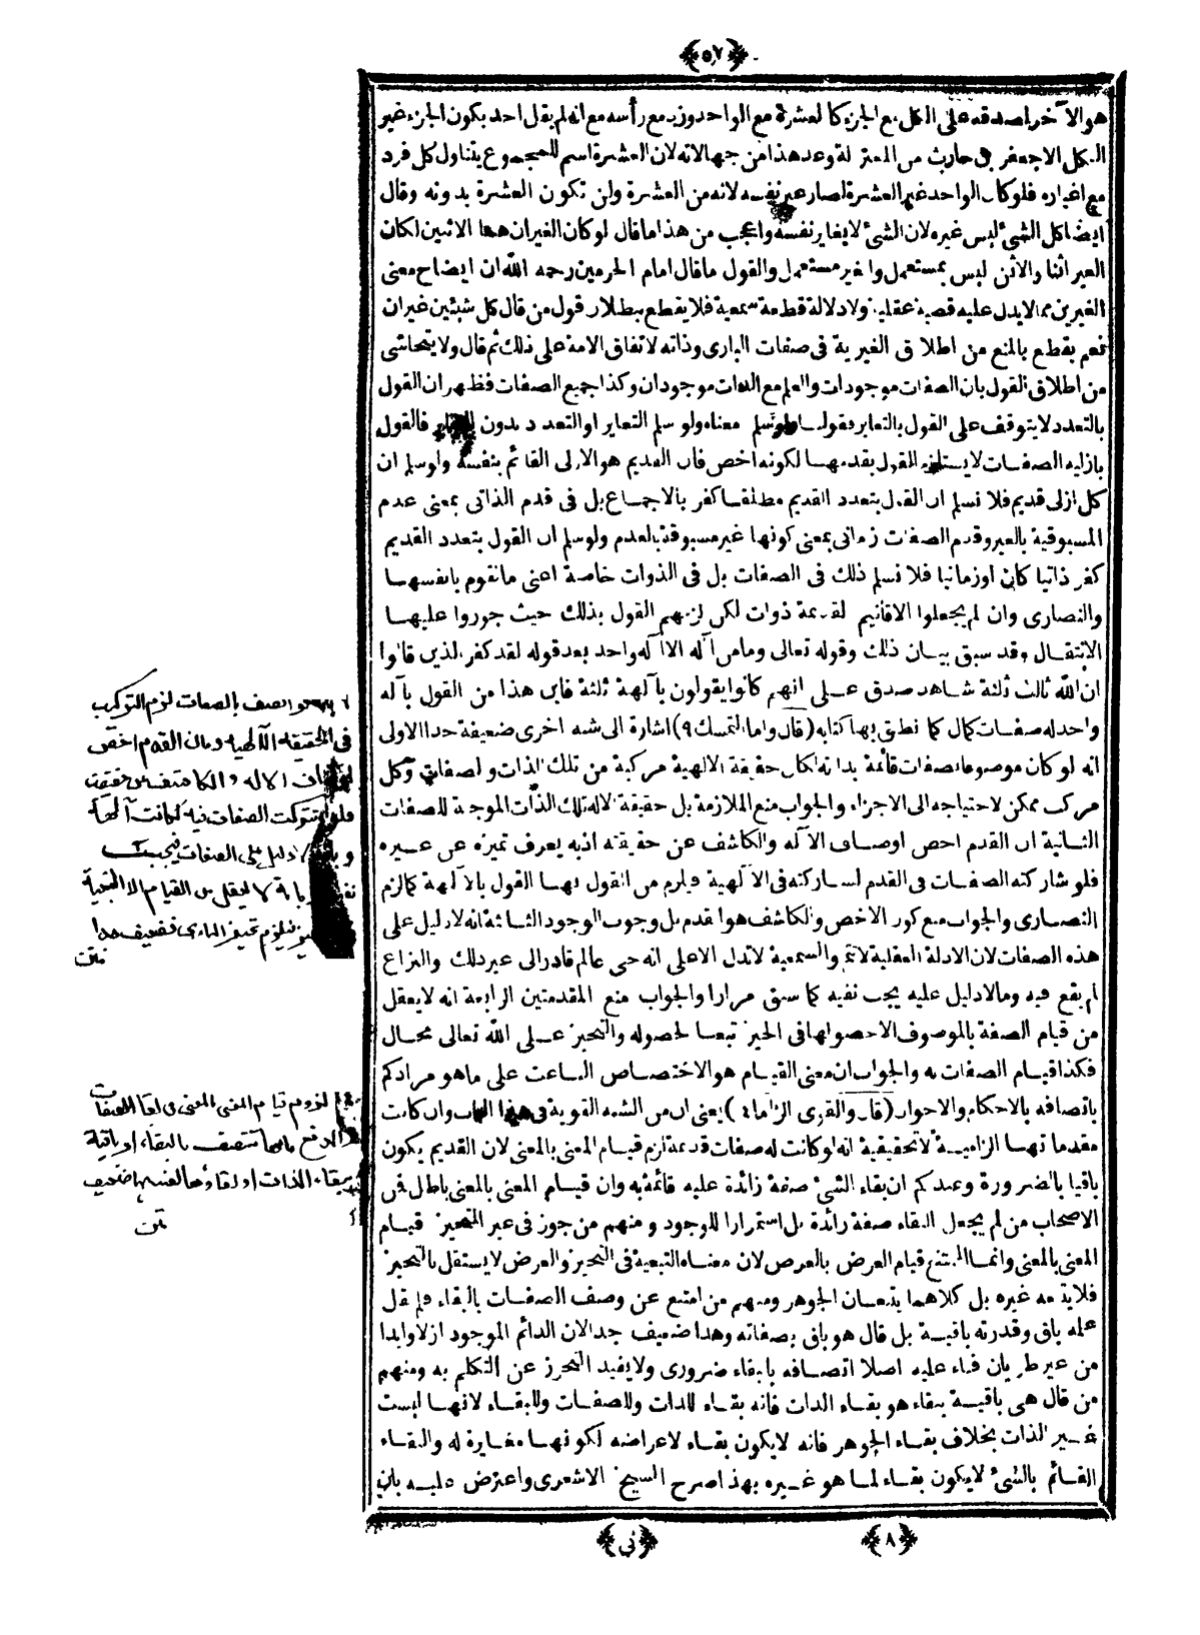 ﴿٥٧﴾
هو الآخر اصدقه على الكل مع الجزء كالعشرة مع الواحد وزيد مع رأسه مع انه لم يقل احد بكون الجزء غير
الكل الا جعفر بن حارث من المعتزلة وعد هذا من جهالاته لان العشرة اسم للمجموع يتناول كل فرد
مع اغياره فلو كان الواحد غير العشرة لصار غير نفسه لانه من العشرة ولن تكون العشرة بدونه وقال
ايضا كل الشئ ليس غيره لان الشئ لا يغاير نفسه واعجب من هذا ما قال لو كان الغيران هما الاثنين لكان
الغير اثنا والاثن ليس بمستعمل والغير مستعمل والقول ما قال امام الحرمين رحمه الله ان ايضاح معنى
الغيرين مما لا يدل عليه قضية عقلية ولا دلالة قطعية سمعية فلا يقطع ببطلان قول من قال كل شيئين غيران
نعم يقطع بالمنع من اطلاق الغيرية فى صفات البارى وذاته لاتفاق الامة على ذلك ثم قال ولا يتحاشى
من اطلاق القول بان الصفات موجودات والعلم مع الذات موجودان وكذا جميع الصفات فظهر ان القول
بالتعدد لا يتوقف على القول بالتغاير معناه ولو سلم التغاير او التعدد بدون التغاير فالقول
بازلية الصفات لا يستلزم القول بقدمها لكونه اخص فان القديم هو الازلى القائم بنفسه ولو سلم ان
كل ازلى قديم فلا نسلم ان القول بتعدد القديم مطلقا كفر بالاجماع بل فى قدم الذاتى بمعنى عدم
المسبوقية بالغير وقدم الصفات زمانى بمعنى كونها غير مسبوقة بالعدم ولو سلم ان القول بتعدد القديم
كفر ذاتيا كان او زمانيا فلا نسلم ذلك فى الصفات بل فى الذوات خاصة اعنى ما تقوم بانفسها
والنصارى وان لم يجعلوا الاقانيم القديمة ذوات لكن لزمهم القول بذلك حيث جوزوا عليها
الانتقال وقد سبق بيان ذلك وقوله تعالى وما من آله الا آله واحد بعد قوله لقد كفر الذين قالوا
ان الله ثالث ثلثة شاهد صدق على انهم كانوا يقولون بآلهة ثلثة فاين هذا من القول بآله
واحد له صفات كمال كما نطق بها كتابه (قال واما التمسك ٩) اشارة الى شبه اخرى ضعيفة جدا الاولى
انه لو كان موصوفا بصفات قائمة بذاته لكان حقيقة الالهية مركبة من تلك الذات والصفات وكل
مركب ممكن لاحتياجه الى الاجزاء والجواب منع الملازمة بل حقيقة الاله تلك الذات الموجبة للصفات
الثانية ان القدم اخص اوصاف الآله والكاشف عن حقيقته اذ به يعرف تميزه عن غيره
فلو شاركته الصفات فى القدم لشاركته فى الآلهية فيلزم من القول بها القول بالآلهة كما لزم
النصارى والجواب منع كون الاخص والكاشف هو القدم بل وجوب الوجود الثالثة انه لا دليل على
هذه الصفات لان الادلة العقلية لا تتم والسمعية لا تدل الا على انه حى عالم قادر الى غير ذلك والنزاع
لم يقع فيه وما لا دليل عليه يجب نفيه كما سبق مرارا والجواب منع المقدمتين الرابعة انه لا يعقل
من قيام الصفة بالموصوف الا حصولها فى الحيز تبعا لحصوله والتحيز على الله تعالى محال
فكذا قيام الصفات به والجواب ان معنى القيام هو الاختصاص الناعت على ما هو مرادكم
باتصافه بالاحكام والاحوال (قال والقوى الزاما ٤) يعنى ان من الشبه القوية فى هذا الباب وان كانت
مقدماتها الزامية لا تحقيقية انه لو كانت له صفات قديمة لزم قيام المعنى بالمعنى لان القديم يكون
باقيا بالضرورة وعندكم ان بقاء الشئ صفة زائدة عليه قائمة به وان قيام المعنى بالمعنى باطل فمن
الاصحاب من لم يجعل البقاء صفة زائدة بل استمرارا للوجود ومنهم من جوز فى غير المتحيز قيام
المعنى بالمعنى وانما الممتنع قيام العرض بالعرض لان معناه التبعية فى التحيز والعرض لا يستقل بالتحيز
فلا يتبعه غيره بل كلاهما يتبعان الجوهر ومنهم من امتنع عن وصف الصفات بالبقاء فلم يقل
علمه باق وقدرته باقية بل قال هو باق بصفاته وهذا ضعيف جدا لان الدائم الموجود ازلا وابدا
من غير طريان فناء عليه اصلا اتصافه بالبقاء ضرورى ولا يفيد التحرز عن التكلم به ومنهم
من قال هى باقية ببقاء هو بقاء الذات فانه بقاء للذات وللصفات وللبقاء لانها ليست
غير الذات بخلاف بقاء الجوهر فانه لا يكون بقاء لاعراضه لكونها مغايرة له والبقاء
القائم بالشئ لا يكون بقاء لما هو غيره بهذا صرح الشيخ الاشعرى واعترض عليه بان
لو اتصف بالصفات لزم التركيب
فى الحقيقة الآلهية وبان القدم اخص
الاله والكاشف عن حقيقته
فلو شاركت الصفات فيه لكانت آلهة
لا دليل على الصفات فيجب
لا يعقل من القيام الا التبعية
فيلزم تحيز البارى فضعيف جدا
متن
لزوم قيام المعنى بالمعنى فى بقاء الصفات
بالبقاء او باقية
ببقاء الذات او بقاؤها لنفسها ضعيف
متن
﴿٨﴾
﴿نى﴾